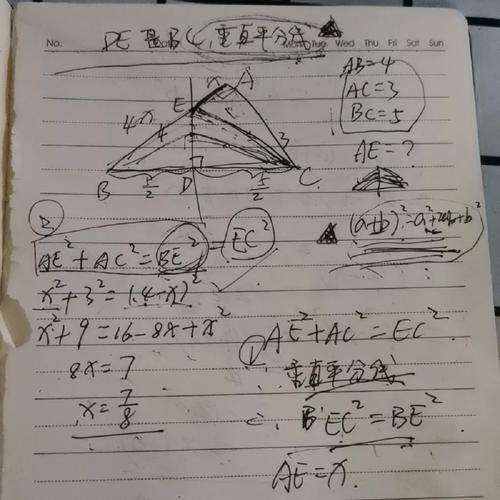 DE是BC垂直平分线
No. Mon Tue Wed Thu Fri Sat Sun
AB=4
AC=3
BC=5
AE=?
x A
E
4-x 4 3
B 5/2 D 5/2 C
(a+b)²=a²+2ab+b²
②
AE²+AC²=BE²=EC²
x²+3²=(4-x)²
x²+9=16-8x+x²
8x=7
x=7/8
① AE²+AC²=EC²
∵垂直平分线
∴ EC²=BE²
AE=x